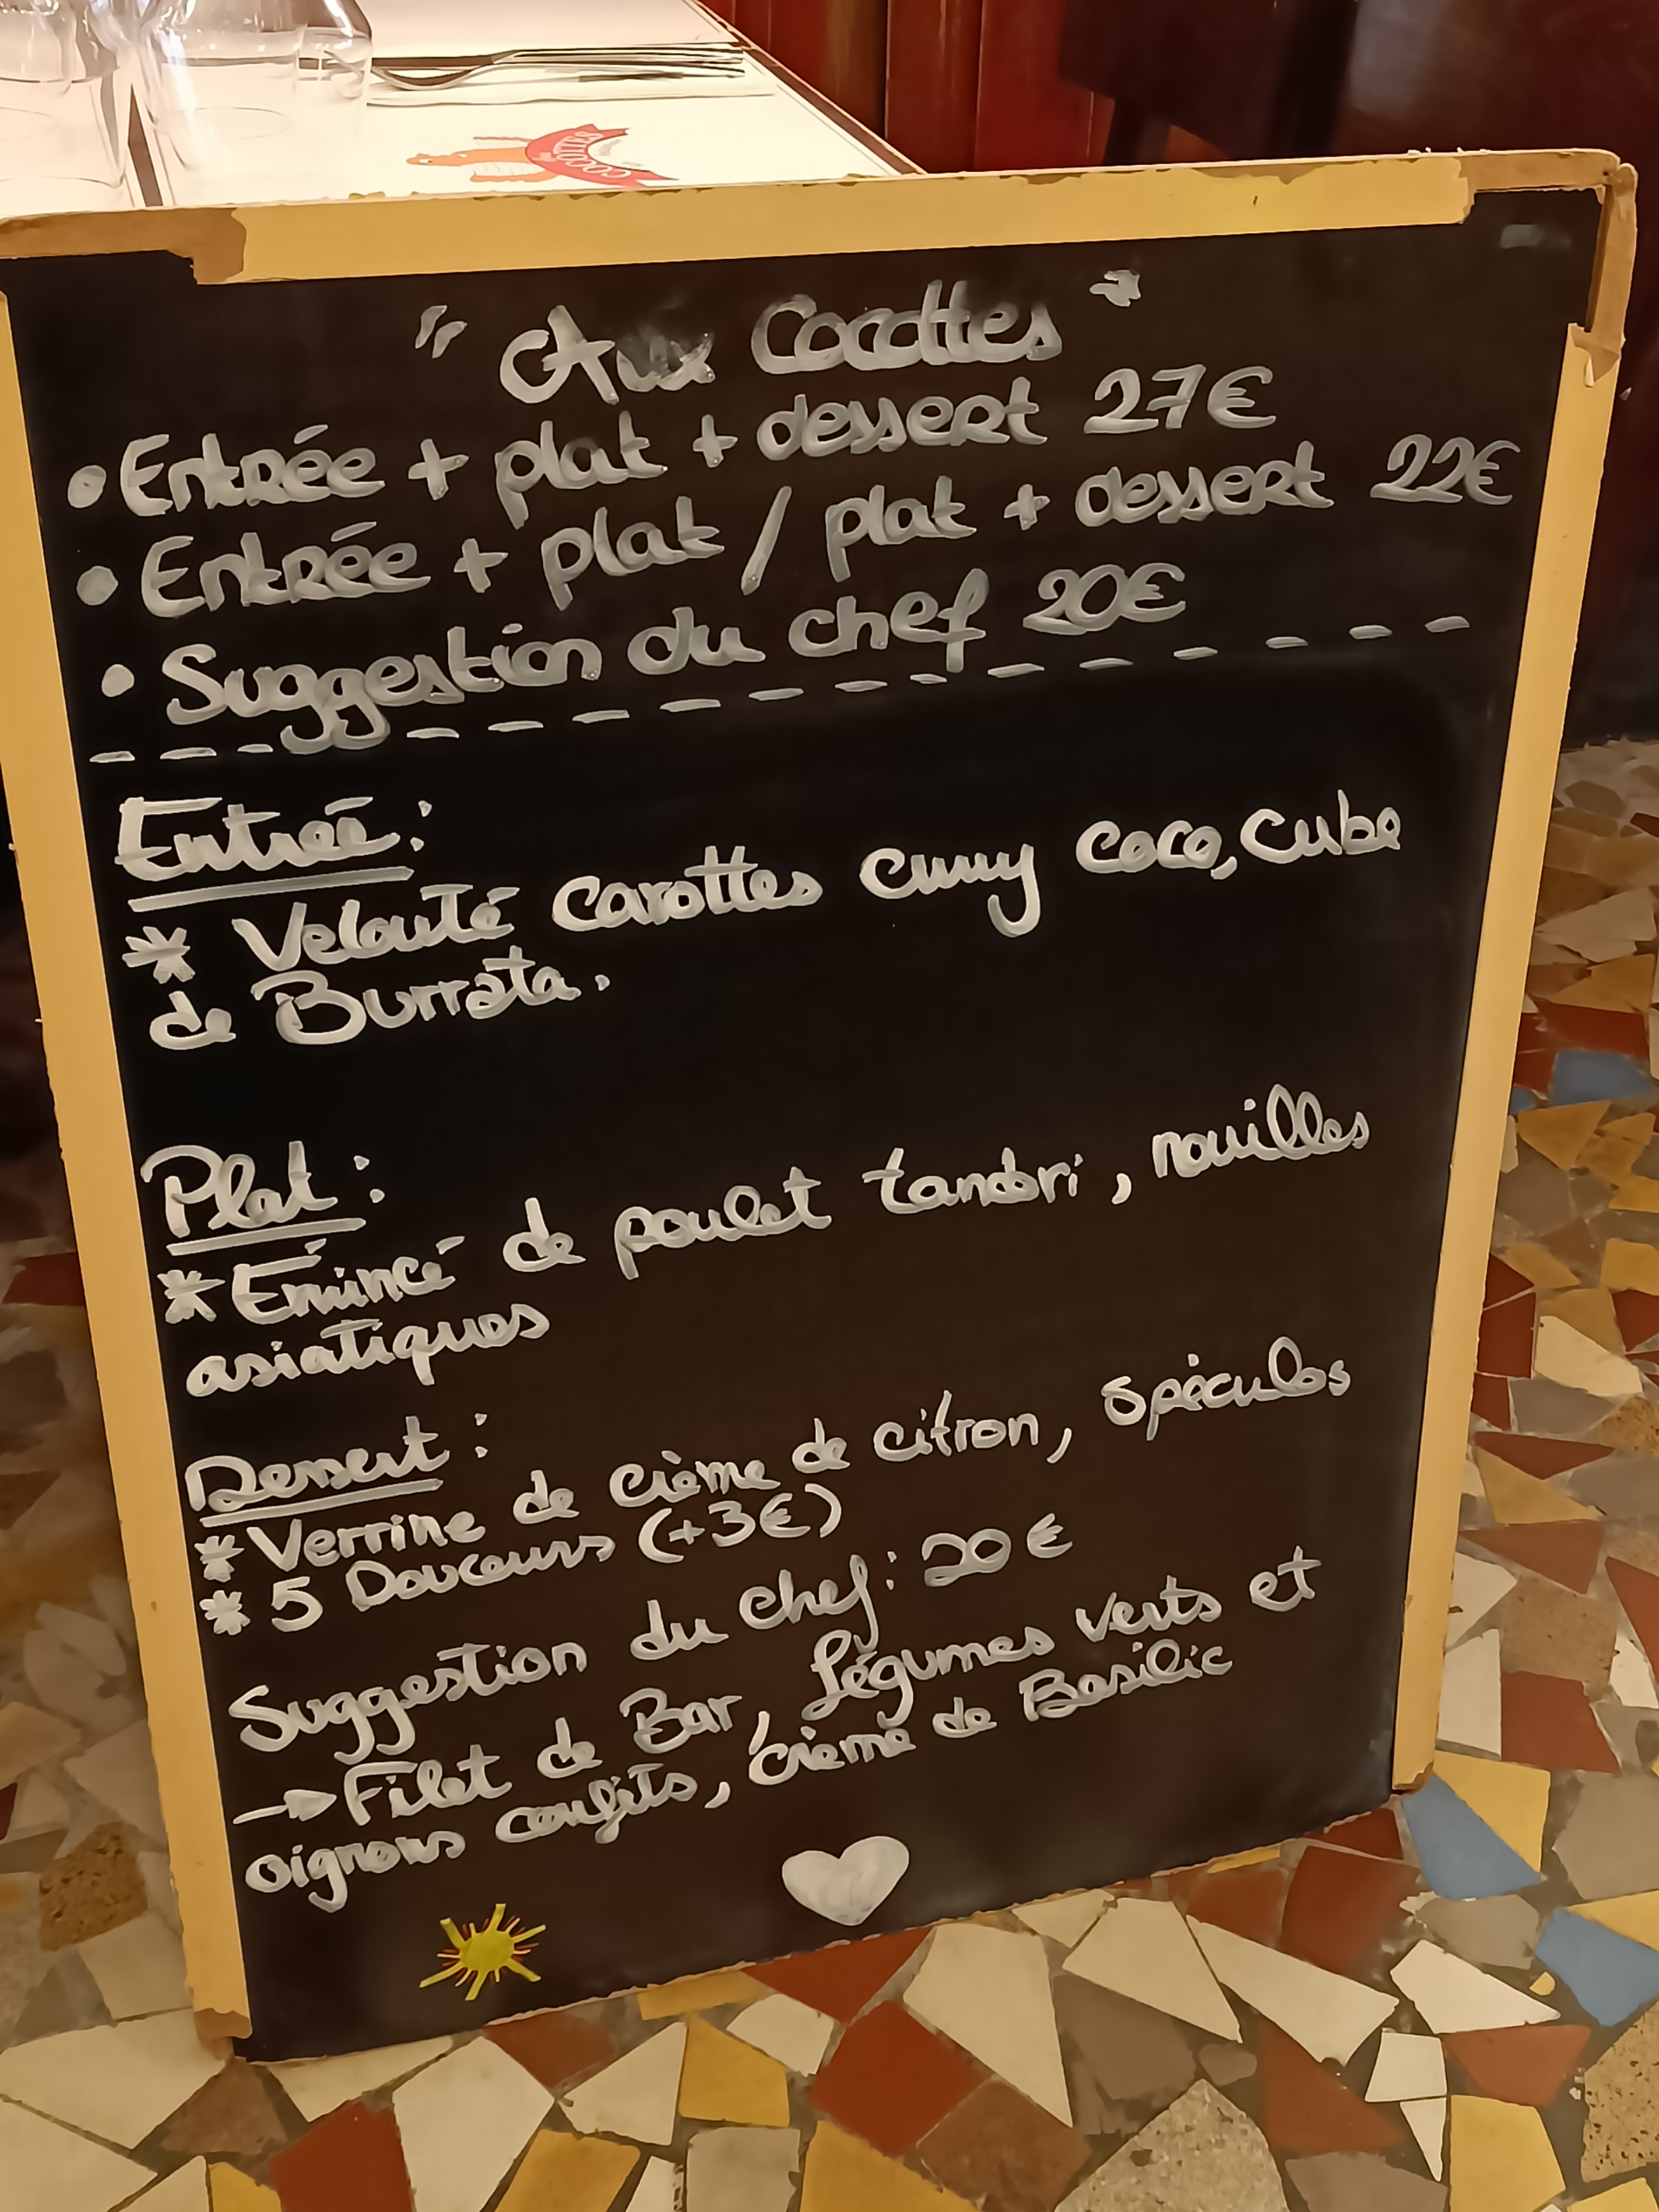 " Aux Cocottes "
• Entrée + plat + dessert 27€
• Entrée + plat / plat + dessert 22€
• Suggestion du chef 20€
Entrée :
* Velouté carottes curry coco, Cube
de Burrata.
Plat :
* Émincé de poulet tandori, nouilles
asiatiques
Dessert :
* Verrine de crème de citron, spéculos
* 5 Douceurs (+3€)
Suggestion du chef : 20€
→ Filet de Bar, Légumes verts et
oignons confits, crème de Basilic